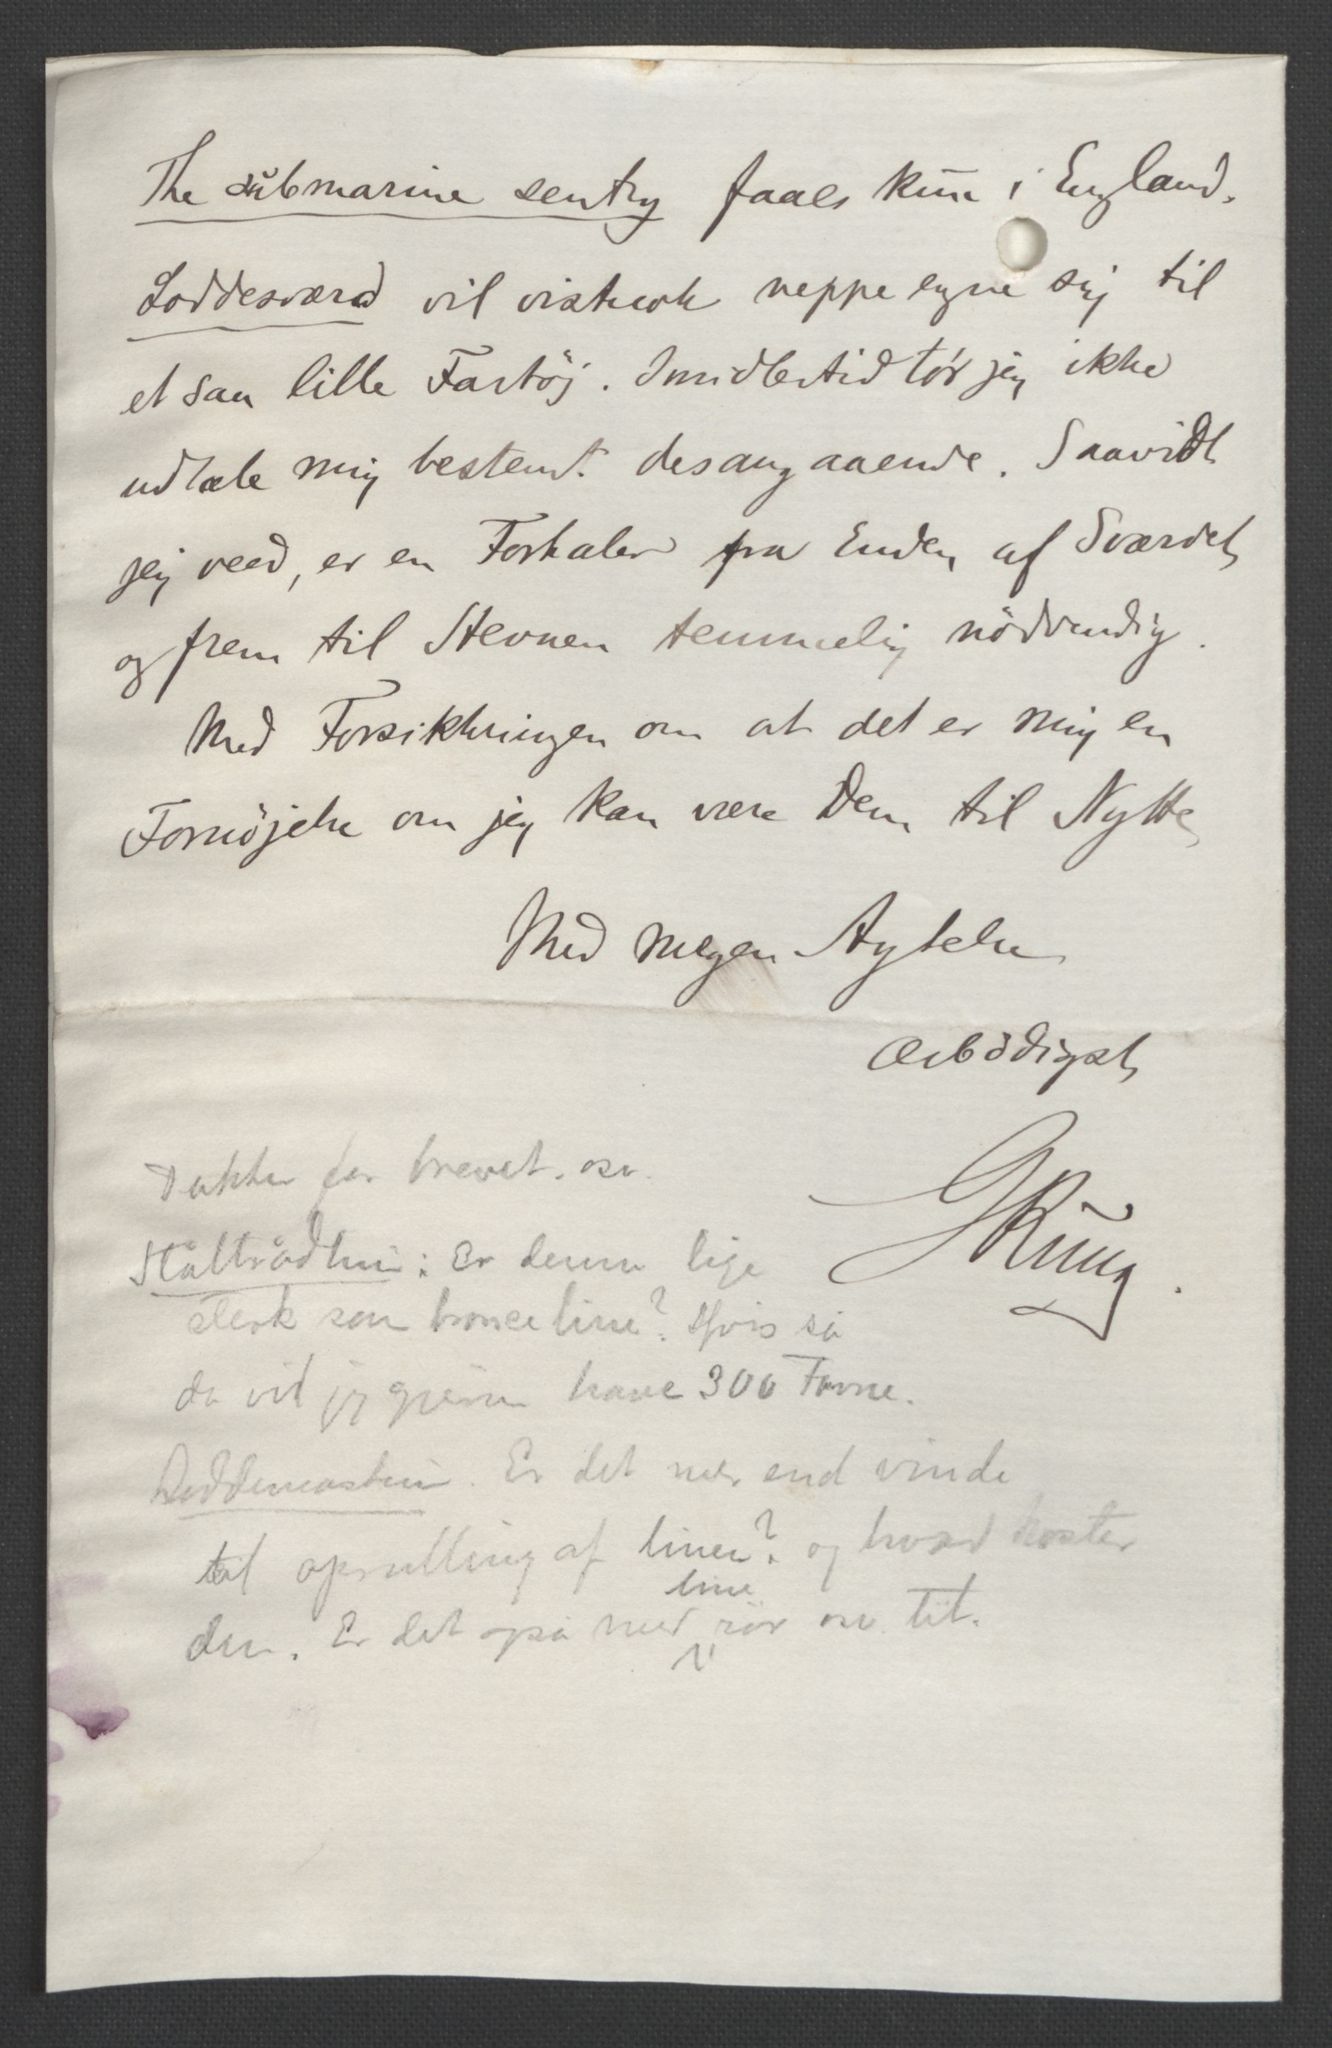 The submarine sentry faaes kun i England.
Loddesværd vil vistnok neppe egne sig til
et saa lille Fartöj. Imidlertid tör jeg ikke
udtale mig bestemt desangaaende. Saavidt
jeg veed, er en Forhaler fra Enden af Sværdet
og frem til Stevnen temmelig nödvendig.
Med Forsikkringen om at det er mig en
Fornöjelse om jeg kan være Dem til Nytte,
Med megen Agtelse
Ærbödigst
G Rung.
Takke for brevet. osv.
Ståltrådline: Er denne lige
sterk som bronceline? Hvis så
da vil jeg gjerne have 300 Favne.
Loddemaskin. Er det mer end vinde
til oprulling af linen? og hvad koster
den. Er det også med line rör osv. til.